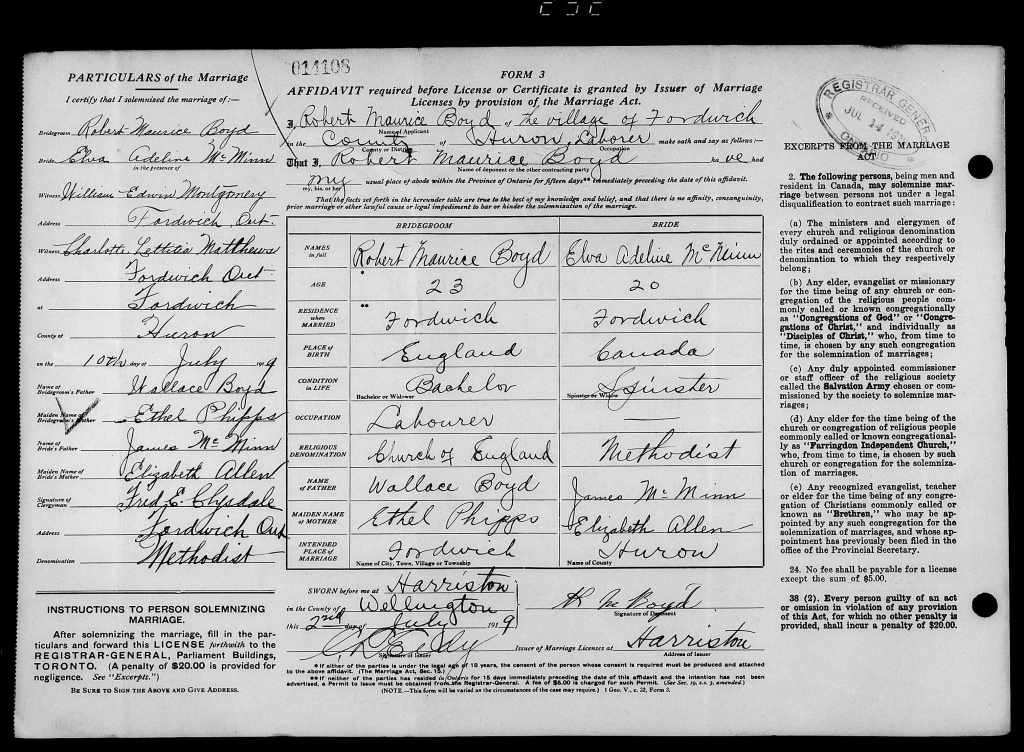 PARTICULARS of the Marriage
I certify that I solemnized the marriage of:—
Bridegroom Robert Maurice Boyd
Bride, Elva Adeline McMinn
in the presence of
Witness William Edwin Montgomery
Address Fordwich Ont.
Witness Charlotte Lettitia Matthews
Address Fordwich Ont
at Fordwich
County of Huron
on the 10th day of July 1919
Name of Bridegroom's Father Wallace Boyd
Maiden Name of Bridegroom's Mother Ethel Phipps
Name of Bride's Father James McMinn
Maiden Name of Bride's Mother Elizabeth Allen
Signature of Clergyman Fred E. Clysdale
Address Fordwich Ont
Denomination Methodist
INSTRUCTIONS TO PERSON SOLEMNIZING
MARRIAGE.
After solemnizing the marriage, fill in the par-
ticulars and forward this LICENSE forthwith to the
REGISTRAR-GENERAL, Parliament Buildings,
TORONTO. (A penalty of $20.00 is provided for
negligence. See "Excerpts.")
BE SURE TO SIGN THE ABOVE AND GIVE ADDRESS.
014108
FORM 3
AFFIDAVIT required before License or Certificate is granted by Issuer of Marriage
Licenses by provision of the Marriage Act.
I, Robert Maurice Boyd of the village of Fordwich
Name of Applicant
in the County of Huron, Laborer make oath and say as follows:—
County or District Occupation
That I, Robert Maurice Boyd ha ve had
Name of deponent or the other contracting party
my usual place of abode within the Province of Ontario for fifteen days** immediately preceding the date of this affidavit.
my, his, or her
That the facts set forth in the hereunder table are true to the best of my knowledge and belief, and that there is no affinity, consanguinity,
prior marriage or other lawful cause or legal impediment to bar or hinder the solemnization of the marriage.
BRIDEGROOM BRIDE
NAMES in full Robert Maurice Boyd Elva Adeline McMinn
AGE * 23 20
RESIDENCE when MARRIED ** Fordwich Fordwich
PLACE OF BIRTH England Canada
CONDITION IN LIFE Bachelor Spinster
Bachelor or Widower Spinster or Widow
OCCUPATION Labourer
RELIGIOUS DENOMINATION Church of England Methodist
NAME OF FATHER Wallace Boyd James McMinn
MAIDEN NAME OF MOTHER Ethel Phipps Elizabeth Allen
INTENDED PLACE OF MARRIAGE Fordwich Huron
Name of City, Town, Village or Township Name of County
SWORN before me at Harriston
in the County of Wellington
this 2nd day of July 1919
R M Boyd
Signature of Deponent
Signature of Issuer
Issuer of Marriage Licenses at Harriston
Address of Issuer
* If either of the parties is under the legal age of 18 years, the consent of the person whose consent is required must be produced and attached
to the above affidavit. (The Marriage Act, Sec. 15.)
** If neither of the parties has resided in Ontario for 15 days immediately preceding the date of this affidavit and the intention has not been
advertised, a Permit to Issue must be obtained from the Registrar-General. A fee of $5.00 is charged for such Permit. (See Sec. 19, s.s. 3, amended.)
(NOTE.—This form will be varied as the circumstances of the case may require.) 1 Geo. V., c. 32, Form 3.
REGISTRAR GENER
RECEIVED
JUL 14 19
EXCERPTS FROM THE MARRIAGE
ACT
2. The following persons, being men and
resident in Canada, may solemnize mar-
riage between persons not under a legal
disqualification to contract such marriage:
(a) The ministers and clergymen of
every church and religious denomination
duly ordained or appointed according to
the rites and ceremonies of the church or
denomination to which they respectively
belong;
(b) Any elder, evangelist or missionary
for the time being of any church or con-
gregation of the religious people com-
monly called or known congregationally
as "Congregations of God" or "Congre-
gations of Christ," and individually as
"Disciples of Christ," who, from time to
time, is chosen by any such congregation
for the solemnization of marriages;
(c) Any duly appointed commissioner
or staff officer of the religious society
called the Salvation Army chosen or com-
missioned by the society to solemnize mar-
riages;
(d) Any elder for the time being of the
church or congregation of religious people
commonly called or known congregational-
ly as "Farringdon Independent Church,"
who, from time to time, is chosen by such
church or congregation for the solemniza-
tion of marriages.
(e) Any recognized evangelist, teacher
or elder for the time being of any congre-
gation of Christians commonly called or
known as "Brethren," who may be ap-
pointed by any such congregation for the
solemnization of marriages, and whose ap-
pointment has previously been filed in the
office of the Provincial Secretary.
24. No fee shall be payable for a license
except the sum of $5.00.
38 (2). Every person guilty of an act
or omission in violation of any provision
of this Act, for which no other penalty is
provided, shall incur a penalty of $20.00.